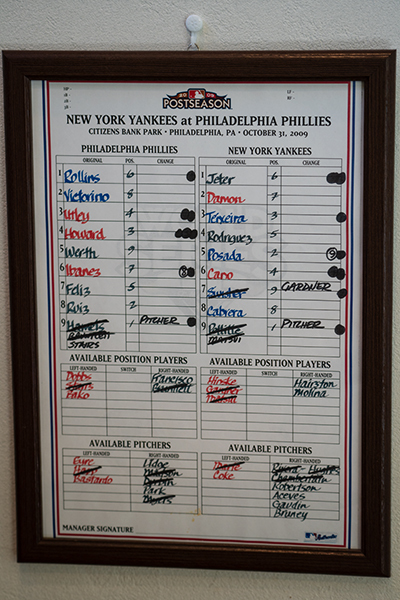 2009
POSTSEASON
NEW YORK YANKEES at PHILADELPHIA PHILLIES
CITIZENS BANK PARK • PHILADELPHIA, PA • OCTOBER 31, 2009
PHILADELPHIA PHILLIES
ORIGINAL POS. CHANGE
1 Rollins 6
2 Victorino 8
3 Utley 4
4 Howard 3
5 Werth 9
6 Ibanez 7 8
7 Feliz 5
8 Ruiz 2
9 Hamels 1 PITCHER
STAIRS
NEW YORK YANKEES
ORIGINAL POS. CHANGE
1 Jeter 6
2 Damon 7
3 Teixeira 3
4 Rodriguez 5
5 Posada 2 9
6 Cano 4
7 Swisher 9 GARDNER
8 Cabrera 8
9 Pettitte 1 PITCHER
MATSUI
AVAILABLE POSITION PLAYERS
LEFT-HANDED SWITCH RIGHT-HANDED
Dobbs Francisco
Stairs Bruntlett
Bako
AVAILABLE POSITION PLAYERS
LEFT-HANDED SWITCH RIGHT-HANDED
Hinske Hairston
Gardner Molina
Matsui
AVAILABLE PITCHERS
LEFT-HANDED RIGHT-HANDED
Eyre Lidge
Happ Madson
Bastardo Durbin
Park
Myers
AVAILABLE PITCHERS
LEFT-HANDED RIGHT-HANDED
Marte Rivera Hughes
Coke Chamberlain
Robertson
Aceves
Gaudin
Bruney
MANAGER SIGNATURE